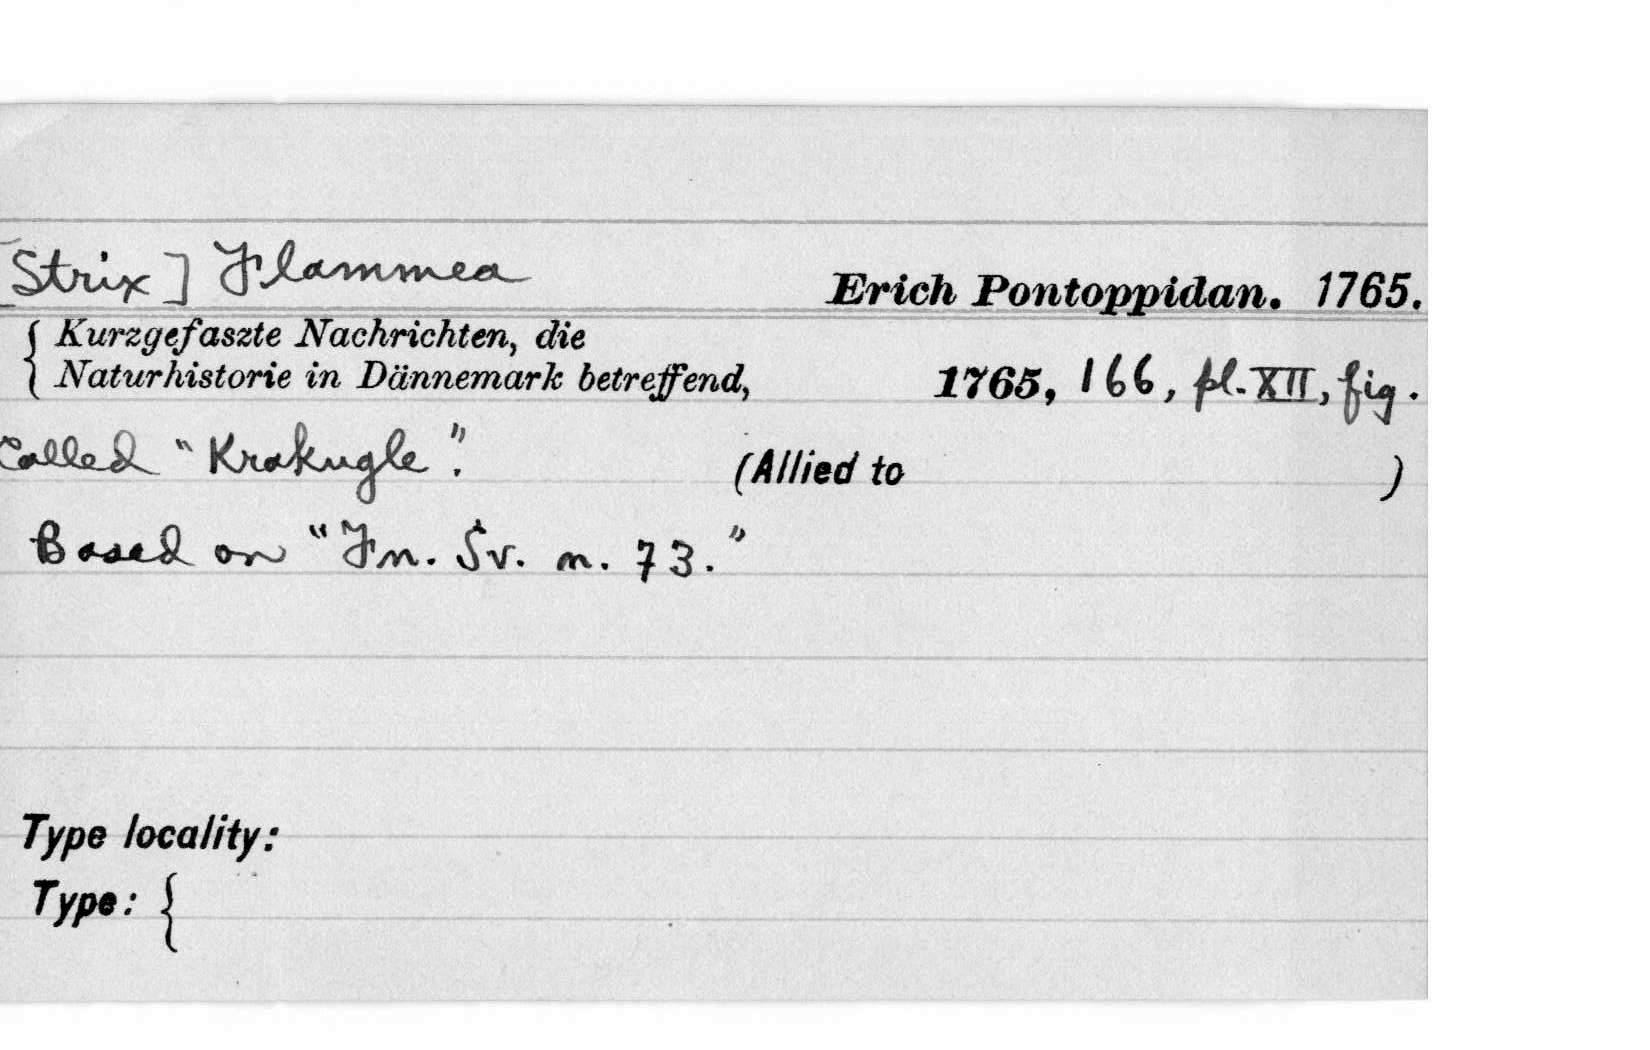 [Strix] Flammea Erich Pontoppidan. 1765.
{ Kurzgefaszte Nachrichten, die
Naturhistorie in Dännemark betreffend, 1765, 166, pl. XII, fig.
Called "Krakugle". (Allied to )
Based on "Fn. Sv. n. 73."
Type locality:
Type: {